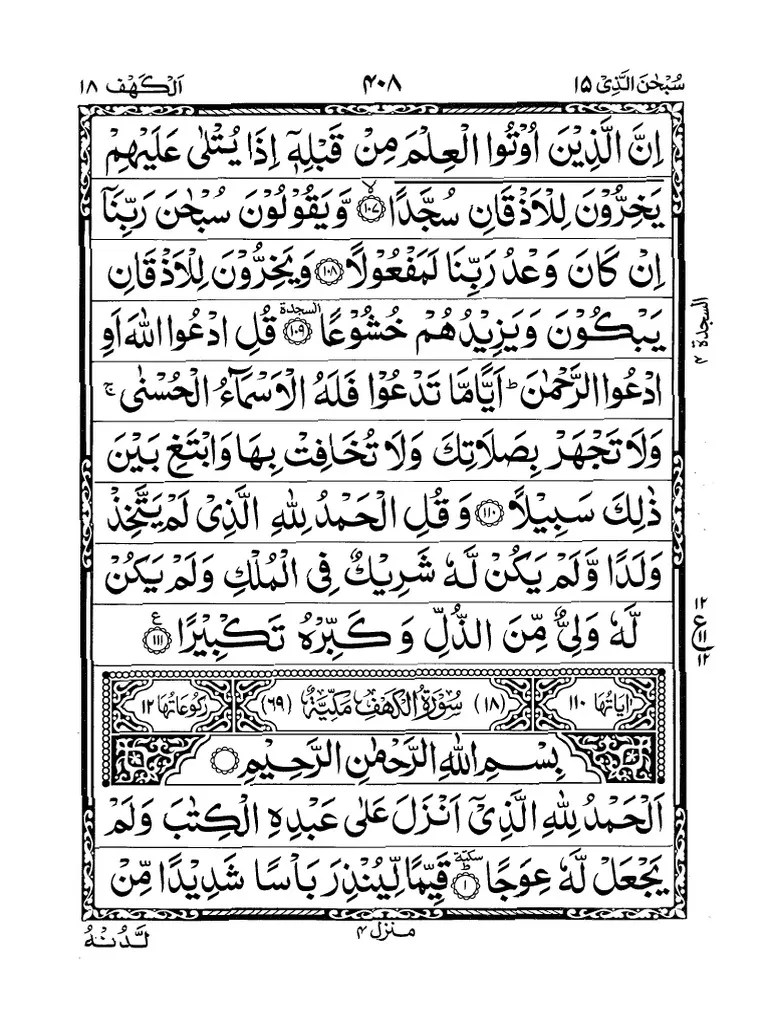 سُبْحٰنَ الَّذِیْ ١٥
۴۰۸
اَلْكَهْف ١٨
اِنَّ الَّذِیْنَ اُوْتُوا الْعِلْمَ مِنْ قَبْلِهٖۤ اِذَا یُتْلٰی عَلَیْهِمْ
یَخِرُّوْنَ لِلْاَذْقَانِ سُجَّدًا ۙ﴿١٠٧﴾ وَّیَقُوْلُوْنَ سُبْحٰنَ رَبِّنَاۤ
اِنْ كَانَ وَعْدُ رَبِّنَا لَمَفْعُوْلًا ﴿١٠٨﴾ وَیَخِرُّوْنَ لِلْاَذْقَانِ
یَبْكُوْنَ وَیَزِیْدُهُمْ خُشُوْعًا ﴿١٠٩﴾ السجدة قُلِ ادْعُوا اللّٰهَ اَوِ
السجدة ۴
ادْعُوا الرَّحْمٰنَ ؕ اَیًّا مَّا تَدْعُوْا فَلَهُ الْاَسْمَآءُ الْحُسْنٰی ۚ
وَلَا تَجْهَرْ بِصَلَاتِكَ وَلَا تُخَافِتْ بِهَا وَابْتَغِ بَیْنَ
ذٰلِكَ سَبِیْلًا ﴿١١٠﴾ وَ قُلِ الْحَمْدُ لِلّٰهِ الَّذِیْ لَمْ یَتَّخِذْ
وَلَدًا وَّلَمْ یَكُنْ لَّهٗ شَرِیْكٌ فِی الْمُلْكِ وَلَمْ یَكُنْ
لَّهٗ وَلِیٌّ مِّنَ الذُّلِّ وَ كَبِّرْهُ تَكْبِیْرًا ﴿١١١﴾ ع
١٢ ع ١١ ١٢
اٰیَاتُهَا ١١٠ (١٨) سُوْرَةُ الْكَهْفِ مَكِّیَّةٌ (٦٩) رُكُوْعَاتُهَا ١٢
بِسْمِ اللّٰهِ الرَّحْمٰنِ الرَّحِیْمِ
اَلْحَمْدُ لِلّٰهِ الَّذِیْۤ اَنْزَلَ عَلٰی عَبْدِهِ الْكِتٰبَ وَلَمْ
یَجْعَلْ لَّهٗ عِوَجًا ؕ﴿١﴾ سكتة قَیِّمًا لِّیُنْذِرَ بَاْسًا شَدِیْدًا مِّنْ
منزل ۴
لَّدُنْهُ